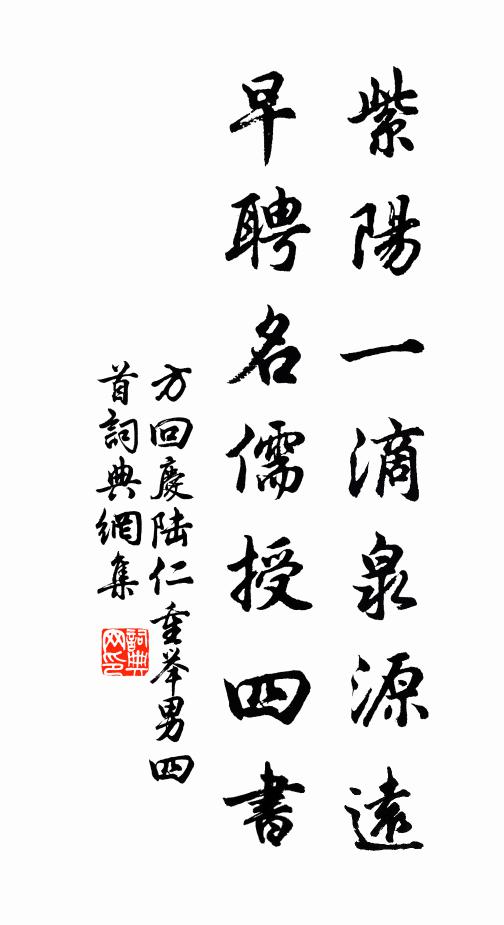 紫陽一滴泉源遠
早聘名儒授四書
方回慶陆仁重举男四
首詞典網集
詞典
网印